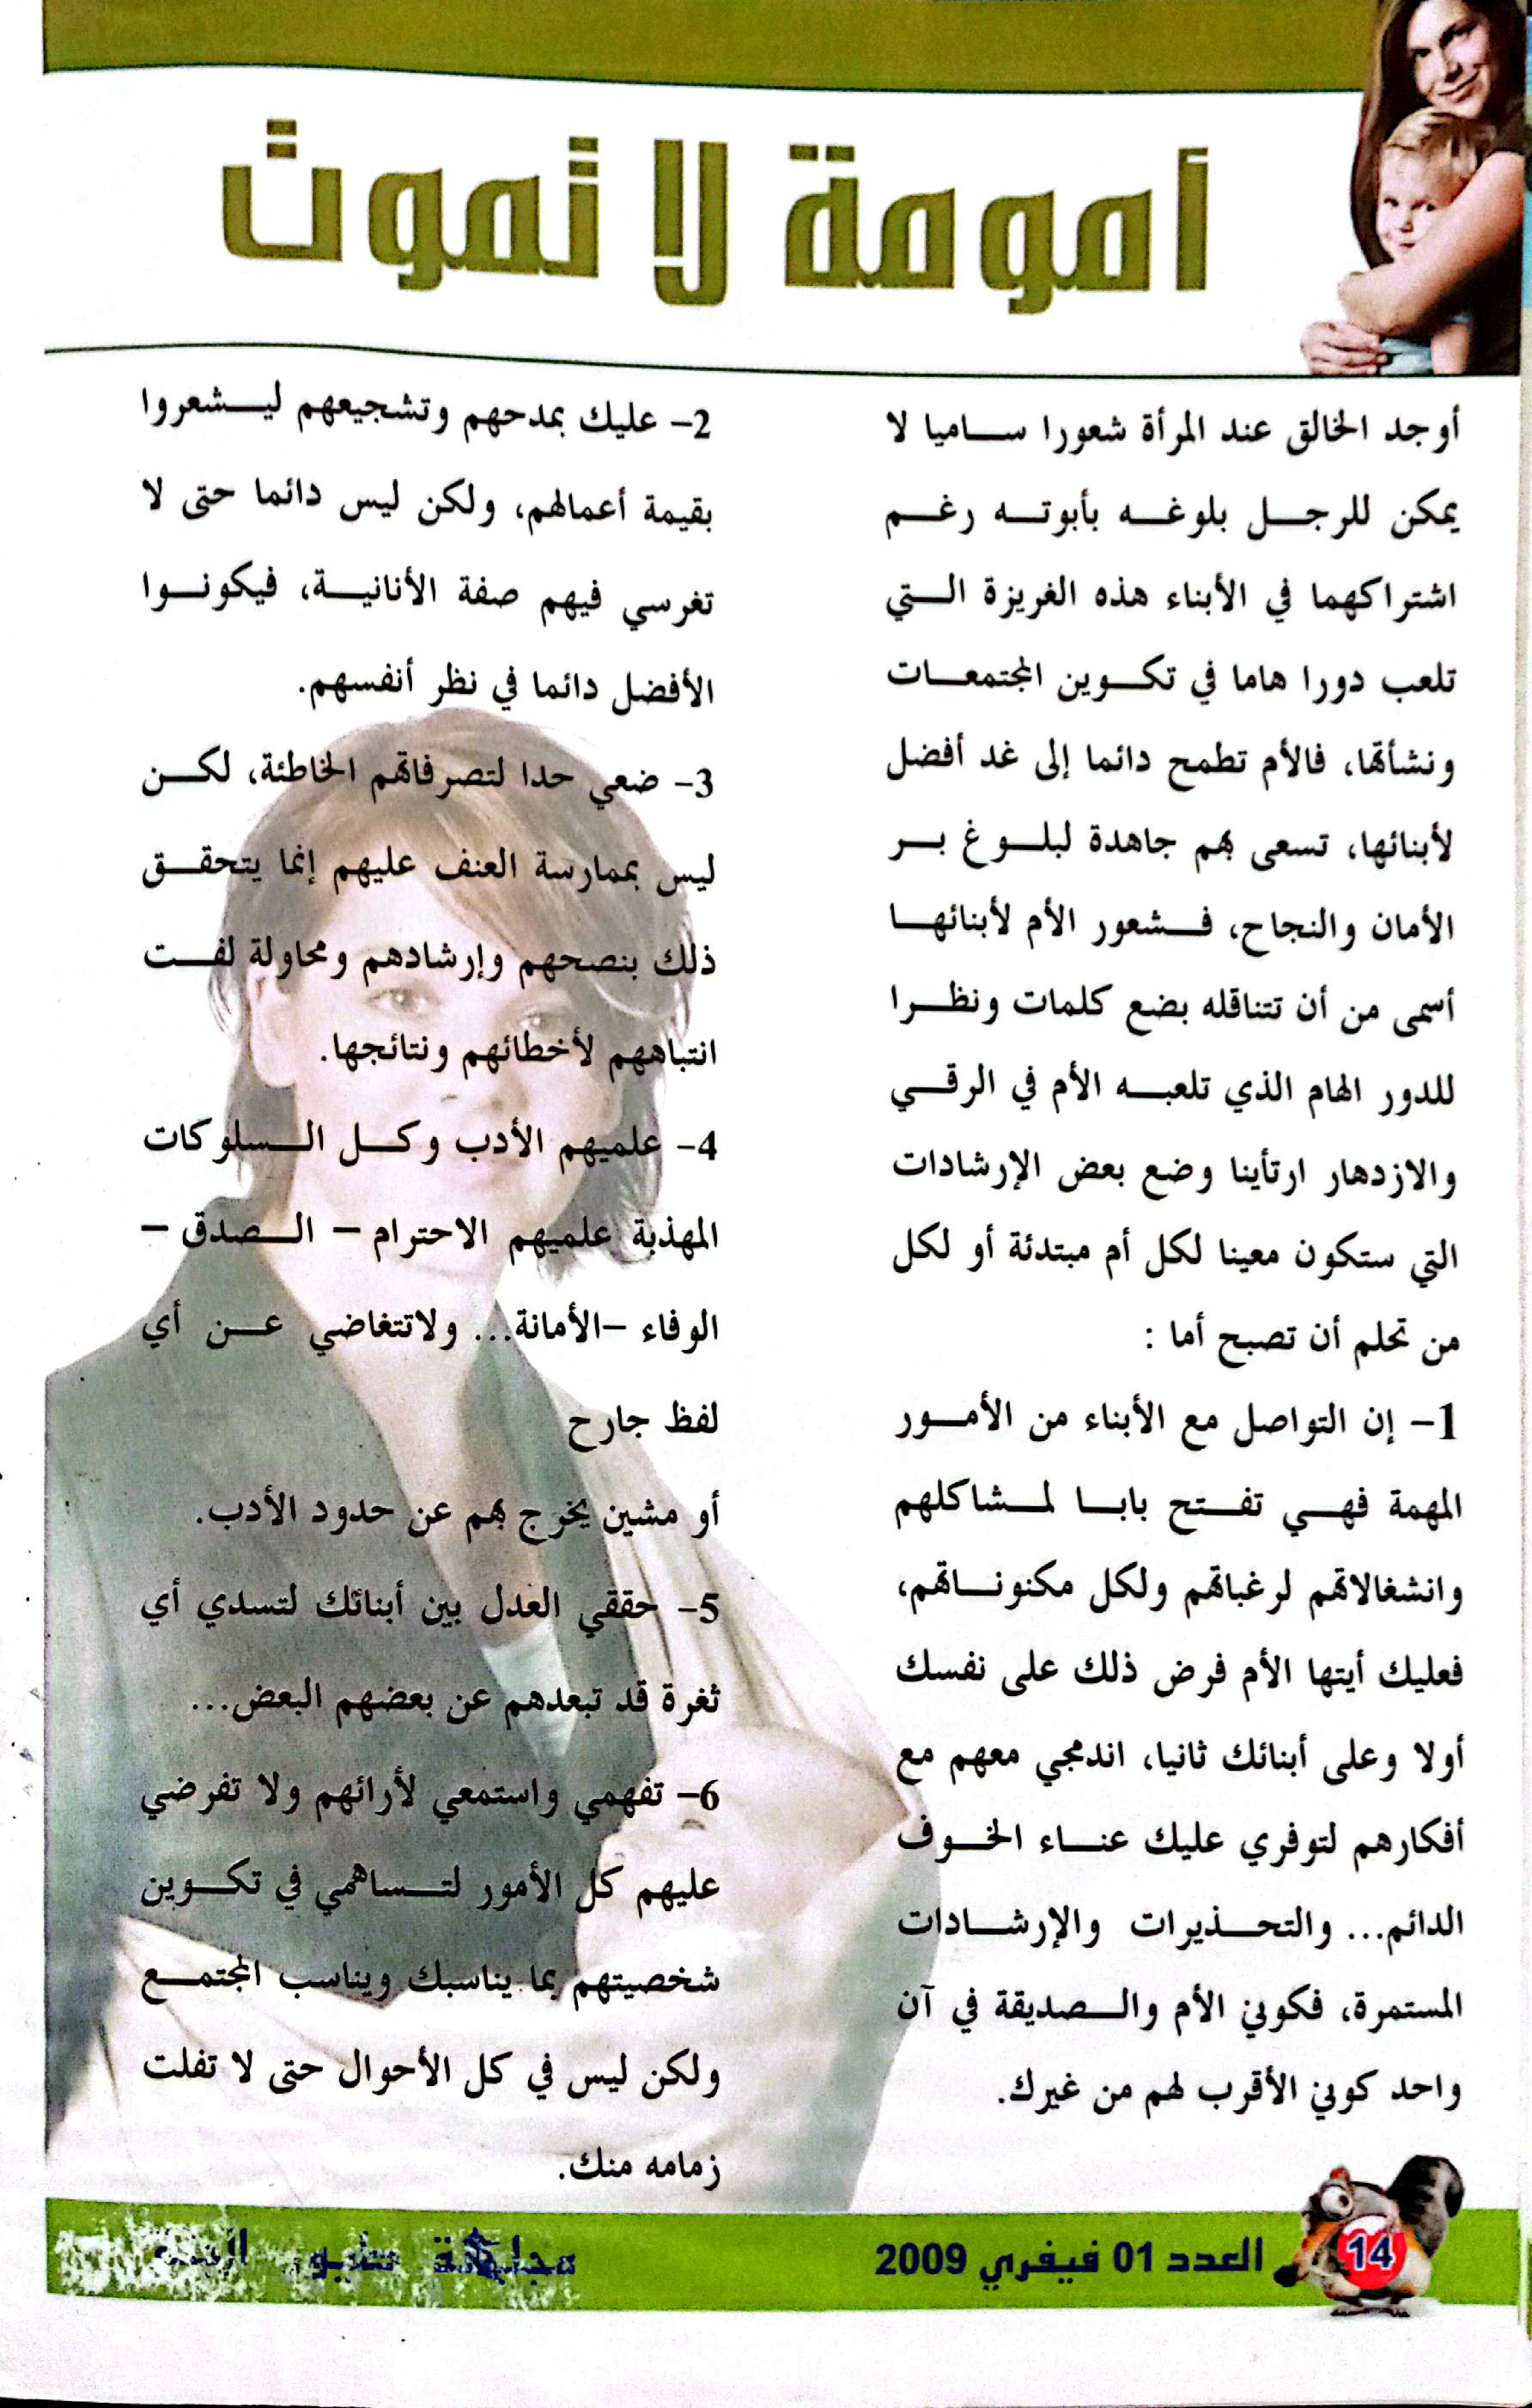 أمومة لا تموت
أوجد الخالق عند المرأة شعورا ساميا لا
يمكن للرجل بلوغه بأبوته رغم
اشتراكهما في الأبناء هذه الغريزة التي
تلعب دورا هاما في تكوين المجتمعات
ونشأتها، فالأم تطمح دائما إلى غد أفضل
لأبنائها، تسعى بهم جاهدة لبلوغ بر
الأمان والنجاح، فشعور الأم لأبنائها
أسمى من أن تتناقله بضع كلمات ونظرا
للدور الهام الذي تلعبه الأم في الرقي
والازدهار ارتأينا وضع بعض الإرشادات
التي ستكون معينا لكل أم مبتدئة أو لكل
من تحلم أن تصبح أما :
1- إن التواصل مع الأبناء من الأمور
المهمة فهي تفتح بابا لمشاكلهم
وانشغالاتهم لرغباتهم ولكل مكنوناتهم،
فعليك أيتها الأم فرض ذلك على نفسك
أولا وعلى أبنائك ثانيا، اندمجي معهم مع
أفكارهم لتوفري عليك عناء الخوف
الدائم... والتحذيرات والإرشادات
المستمرة، فكوني الأم والصديقة في آن
واحد كوني الأقرب لهم من غيرك.
2- عليك بمدحهم وتشجيعهم ليشعروا
بقيمة أعمالهم، ولكن ليس دائما حتى لا
تغرسي فيهم صفة الأنانية، فيكونوا
الأفضل دائما في نظر أنفسهم.
3- ضعي حدا لتصرفاتهم الخاطئة، لكن
ليس بممارسة العنف عليهم إنما يتحقق
ذلك بنصحهم وإرشادهم ومحاولة لفت
انتباههم لأخطائهم ونتائجها.
4- علميهم الأدب وكل السلوكات
المهذبة علميهم الاحترام – الصدق –
الوفاء –الأمانة... ولاتتغاضي عن أي
لفظ جارح
أو مشين يخرج بهم عن حدود الأدب.
5- حققي العدل بين أبنائك لتسدي أي
ثغرة قد تبعدهم عن بعضهم البعض...
6- تفهمي واستمعي لأرائهم ولا تفرضي
عليهم كل الأمور لتساهمي في تكوين
شخصيتهم بما يناسبك ويناسب المجتمع
ولكن ليس في كل الأحوال حتى لا تفلت
زمامه منك.
14
العدد 01 فيفري 2009